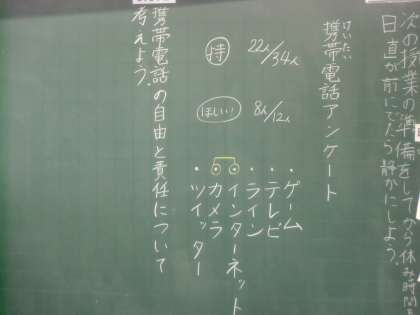 次の授業の準備をしてから休み時間
日直が前にでたら静かにしよう。
携帯電話アンケート
けいたい
持 22人/34人
ほしい! 8人/12人
・ゲーム
・テレビ
・ライン
・インターネット
・カメラ
・ツイッター
携帯電話の自由と責任について
考えよう。